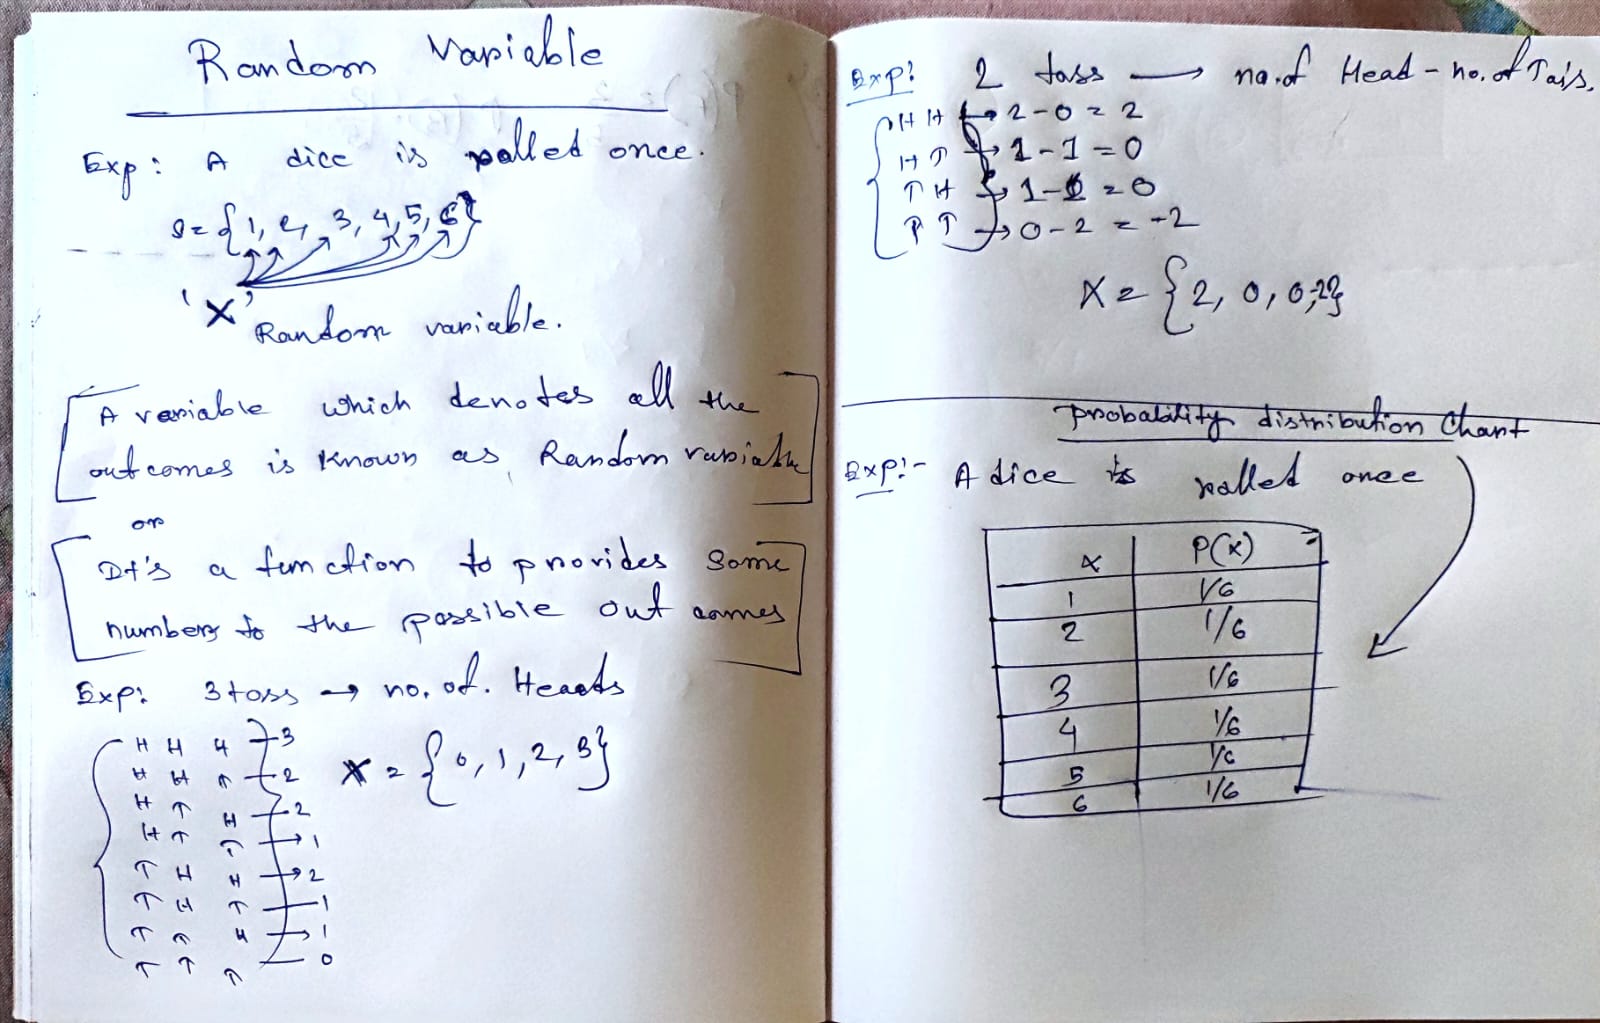 Random Variable
Exp: A dice is rolled once.
S = {1, 2, 3, 4, 5, 6}
'X' Random variable.
A variable which denotes all the
outcomes is known as Random variable
or
It's a function to provides some
numbers to the possible out comes
Exp: 3 toss → no. of. Heads
H H H 3
H H T 2
H T H 2
H T T → 1
T H H → 2
T H T 1
T T H → 1
T T T 0
X = {0, 1, 2, 3}
Exp: 2 toss → no. of Head - no. of Tails.
H H → 2 - 0 = 2
H T → 1 - 1 = 0
T H → 1 - 1 = 0
T T → 0 - 2 = -2
X = {2, 0, 0, -2}
probability distribution Chart
Exp:- A dice is rolled once
x P(x)
1 1/6
2 1/6
3 1/6
4 1/6
5 1/6
6 1/6